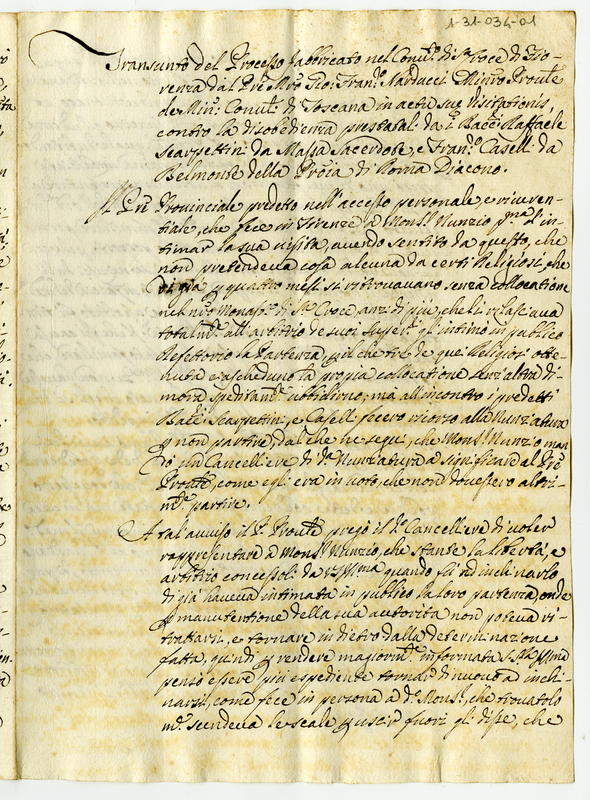 1-31-034-01
Transunto del Processo fabbricato nel Conu.to di S.ta Croce di Fio-
renza dal Pre Mro Gio: Fran.co Narducci Minro Proule
de Min: Conu.li di Toscana in actu suę visitationis,
contro la disobedienza prestatal: da P. Bacc: Raffaele
Scarpettin: da Massa Sacerdote, e Fran.co Casell: da
Belmonte della Prōia di Roma Diacono.
Il Prē Prouinciale predetto nell'accesso personale e riueren-
tiale, che fece in Firenze a Mons.r Nunzio p̄ma d'in-
timar la sua visita, auendo sentito da questo, che
non pretendeua cosa alcuna da certi Religiosi, che
di già p quattro mesi si ritrouauano senza collocatione
nel nro Monast.o di S.ta Croce, anzi di più, che li rilasciaua
total.te all'arbitrio de suoi Super.i gl'intimò in publico
Refettorio la Partenza, il che tre de que' Religiosi otte-
nuta ciascheduno la propia collocatione senz'altra di-
mora speditam.te ubbidirno, mà all'incontro i predetti
Bacc: Scarpettin: e Casell: fecero ricorso alla Nunziatura
p non partire, dal che ne seguì, che Mons.r Nunzio man
dò un Cancelliere di d.a Nunziatura a significare al Prē
Proule, come egli era in uoto, che non douessero altri-
m.te partire.
A tal auuiso il P. Proule pregò il d.o Cancelliere di uoler
rappresentare a Mons.r Nunzio, che stante la libertà, e
arbitrio concessol: da VS Ill.ma quando fù ad inchinarlo
di già haueua intimata in publico la loro partenza, onde
p manutentione della sua autorità non poteua ri-
trattarsi, e tornare in dietro dalla determinazione
fatta, quindi p rendere magiorm.te informata S.S. Ill.ma
pensò essere più espediente tornar di nuouo a inchi-
narsil: come fece in persona a d.o Mons.r, che trouatolo
m.e scendeua le scale p uscir fuori gli disse, che